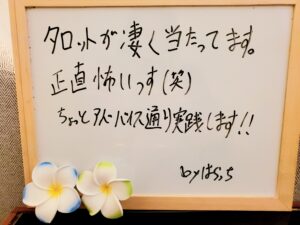 タロットが凄く当たってます。
正直怖いっす(笑)
ちょっとアドバイス通り実践します!!
byはらっち